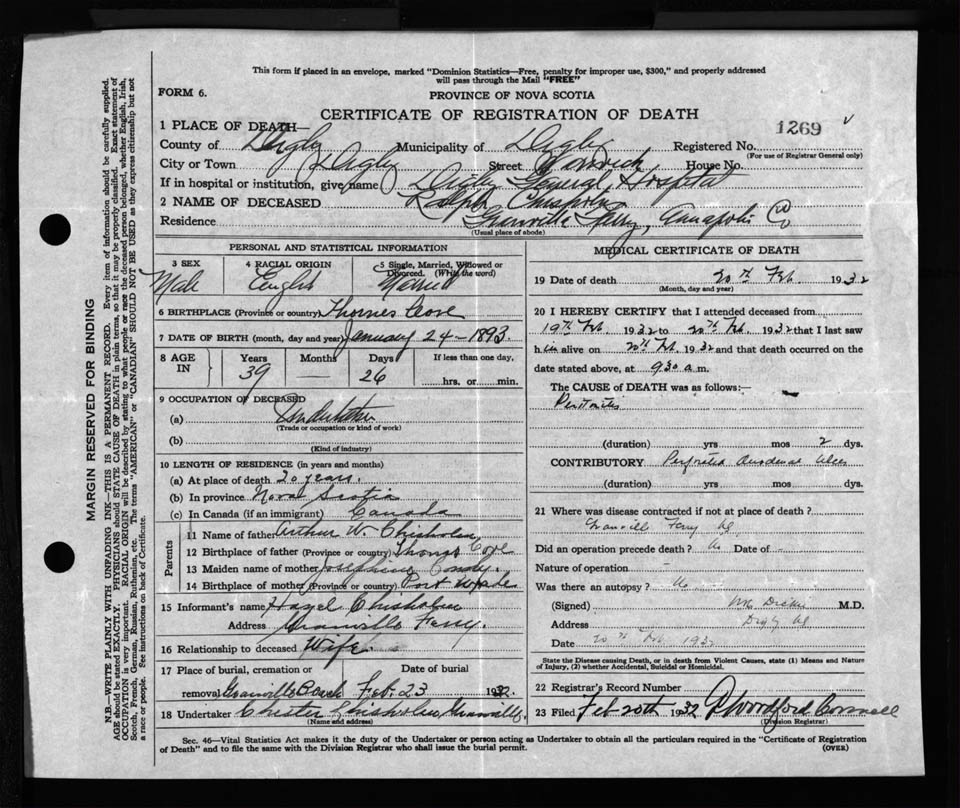 This form if placed in an envelope, marked "Dominion Statistics—Free, penalty for improper use, $300," and properly addressed
will pass through the Mail "FREE"
FORM 6.
PROVINCE OF NOVA SCOTIA
CERTIFICATE OF REGISTRATION OF DEATH
1269
1 PLACE OF DEATH—
County of Digby Municipality of Digby Registered No.
(For use of Registrar General only)
City or Town Digby Street Warwick House No.
If in hospital or institution, give name Digby General Hospital
2 NAME OF DECEASED Ralph Chisholm
Residence Granville Ferry, Annapolis Co
(Usual place of abode)
PERSONAL AND STATISTICAL INFORMATION
3 SEX 4 RACIAL ORIGIN 5 Single, Married, Widowed or
Divorced. (Write the word)
Male English Married
6 BIRTHPLACE (Province or country) Thornes Cove
7 DATE OF BIRTH (month, day and year) January 24-1893.
8 AGE IN Years Months Days If less than one day,
39 — 26 hrs. or min.
9 OCCUPATION OF DECEASED
(a) Undertaker
(Trade or occupation or kind of work)
(b)
(Kind of industry)
10 LENGTH OF RESIDENCE (in years and months)
(a) At place of death 20 years.
(b) In province Nova Scotia
(c) In Canada (if an immigrant) Canada
Parents
11 Name of father Arthur W. Chisholm
12 Birthplace of father (Province or country) Thornes Cove
13 Maiden name of mother Josephine
14 Birthplace of mother (Province or country) Port Wade
15 Informant's name Hazel Chisholm
Address Granville Ferry.
16 Relationship to deceased Wife.
17 Place of burial, cremation or Date of burial
removal Granville Beach Feb. 23 1932.
18 Undertaker Chester Chisholm Granville
(Name and address)
MEDICAL CERTIFICATE OF DEATH
19 Date of death 20th Feb. 1932
(Month, day and year)
20 I HEREBY CERTIFY that I attended deceased from
19th Feb. 1932 to 20th Feb. 1932 that I last saw
him alive on 20th Feb. 1932 and that death occurred on the
date stated above, at 930 a m.
The CAUSE OF DEATH was as follows:—
Peritonitis
(duration) yrs mos 2 dys.
CONTRIBUTORY Perforated duodenal Ulcer
(duration) yrs mos dys.
21 Where was disease contracted if not at place of death?
Granville Ferry NS
Did an operation precede death? No Date of -
Nature of operation -
Was there an autopsy? No
(Signed) Dickie M.D.
Address Digby NS
Date 20th Feb 1932
State the Disease causing Death, or in death from Violent Causes, state (1) Means and Nature
of Injury, (2) whether Accidental, Suicidal or Homicidal.
22 Registrar's Record Number
23 Filed Feb 20th 1932 Woodford Connell
(Division Registrar)
Sec. 46—Vital Statistics Act makes it the duty of the Undertaker or person acting as Undertaker to obtain all the particulars required in the "Certificate of Registration
of Death" and to file the same with the Division Registrar who shall issue the burial permit. (OVER)
MARGIN RESERVED FOR BINDING
N.B.—WRITE PLAINLY WITH UNFADING INK—THIS IS A PERMANENT RECORD. Every item of information should be carefully supplied.
AGE should be stated EXACTLY. PHYSICIANS should STATE CAUSE OF DEATH in plain terms, so that it may be properly classified. Exact statement of
OCCUPATION is very important. RACIAL ORIGIN will be described by stating to what people or race the deceased person belonged, whether English, Irish,
Scotch, French, German, Russian, Ruthenian, etc. The terms "AMERICAN" or "CANADIAN" SHOULD NOT BE USED as they express citizenship but not
a race or people. See instructions on back of Certificate.